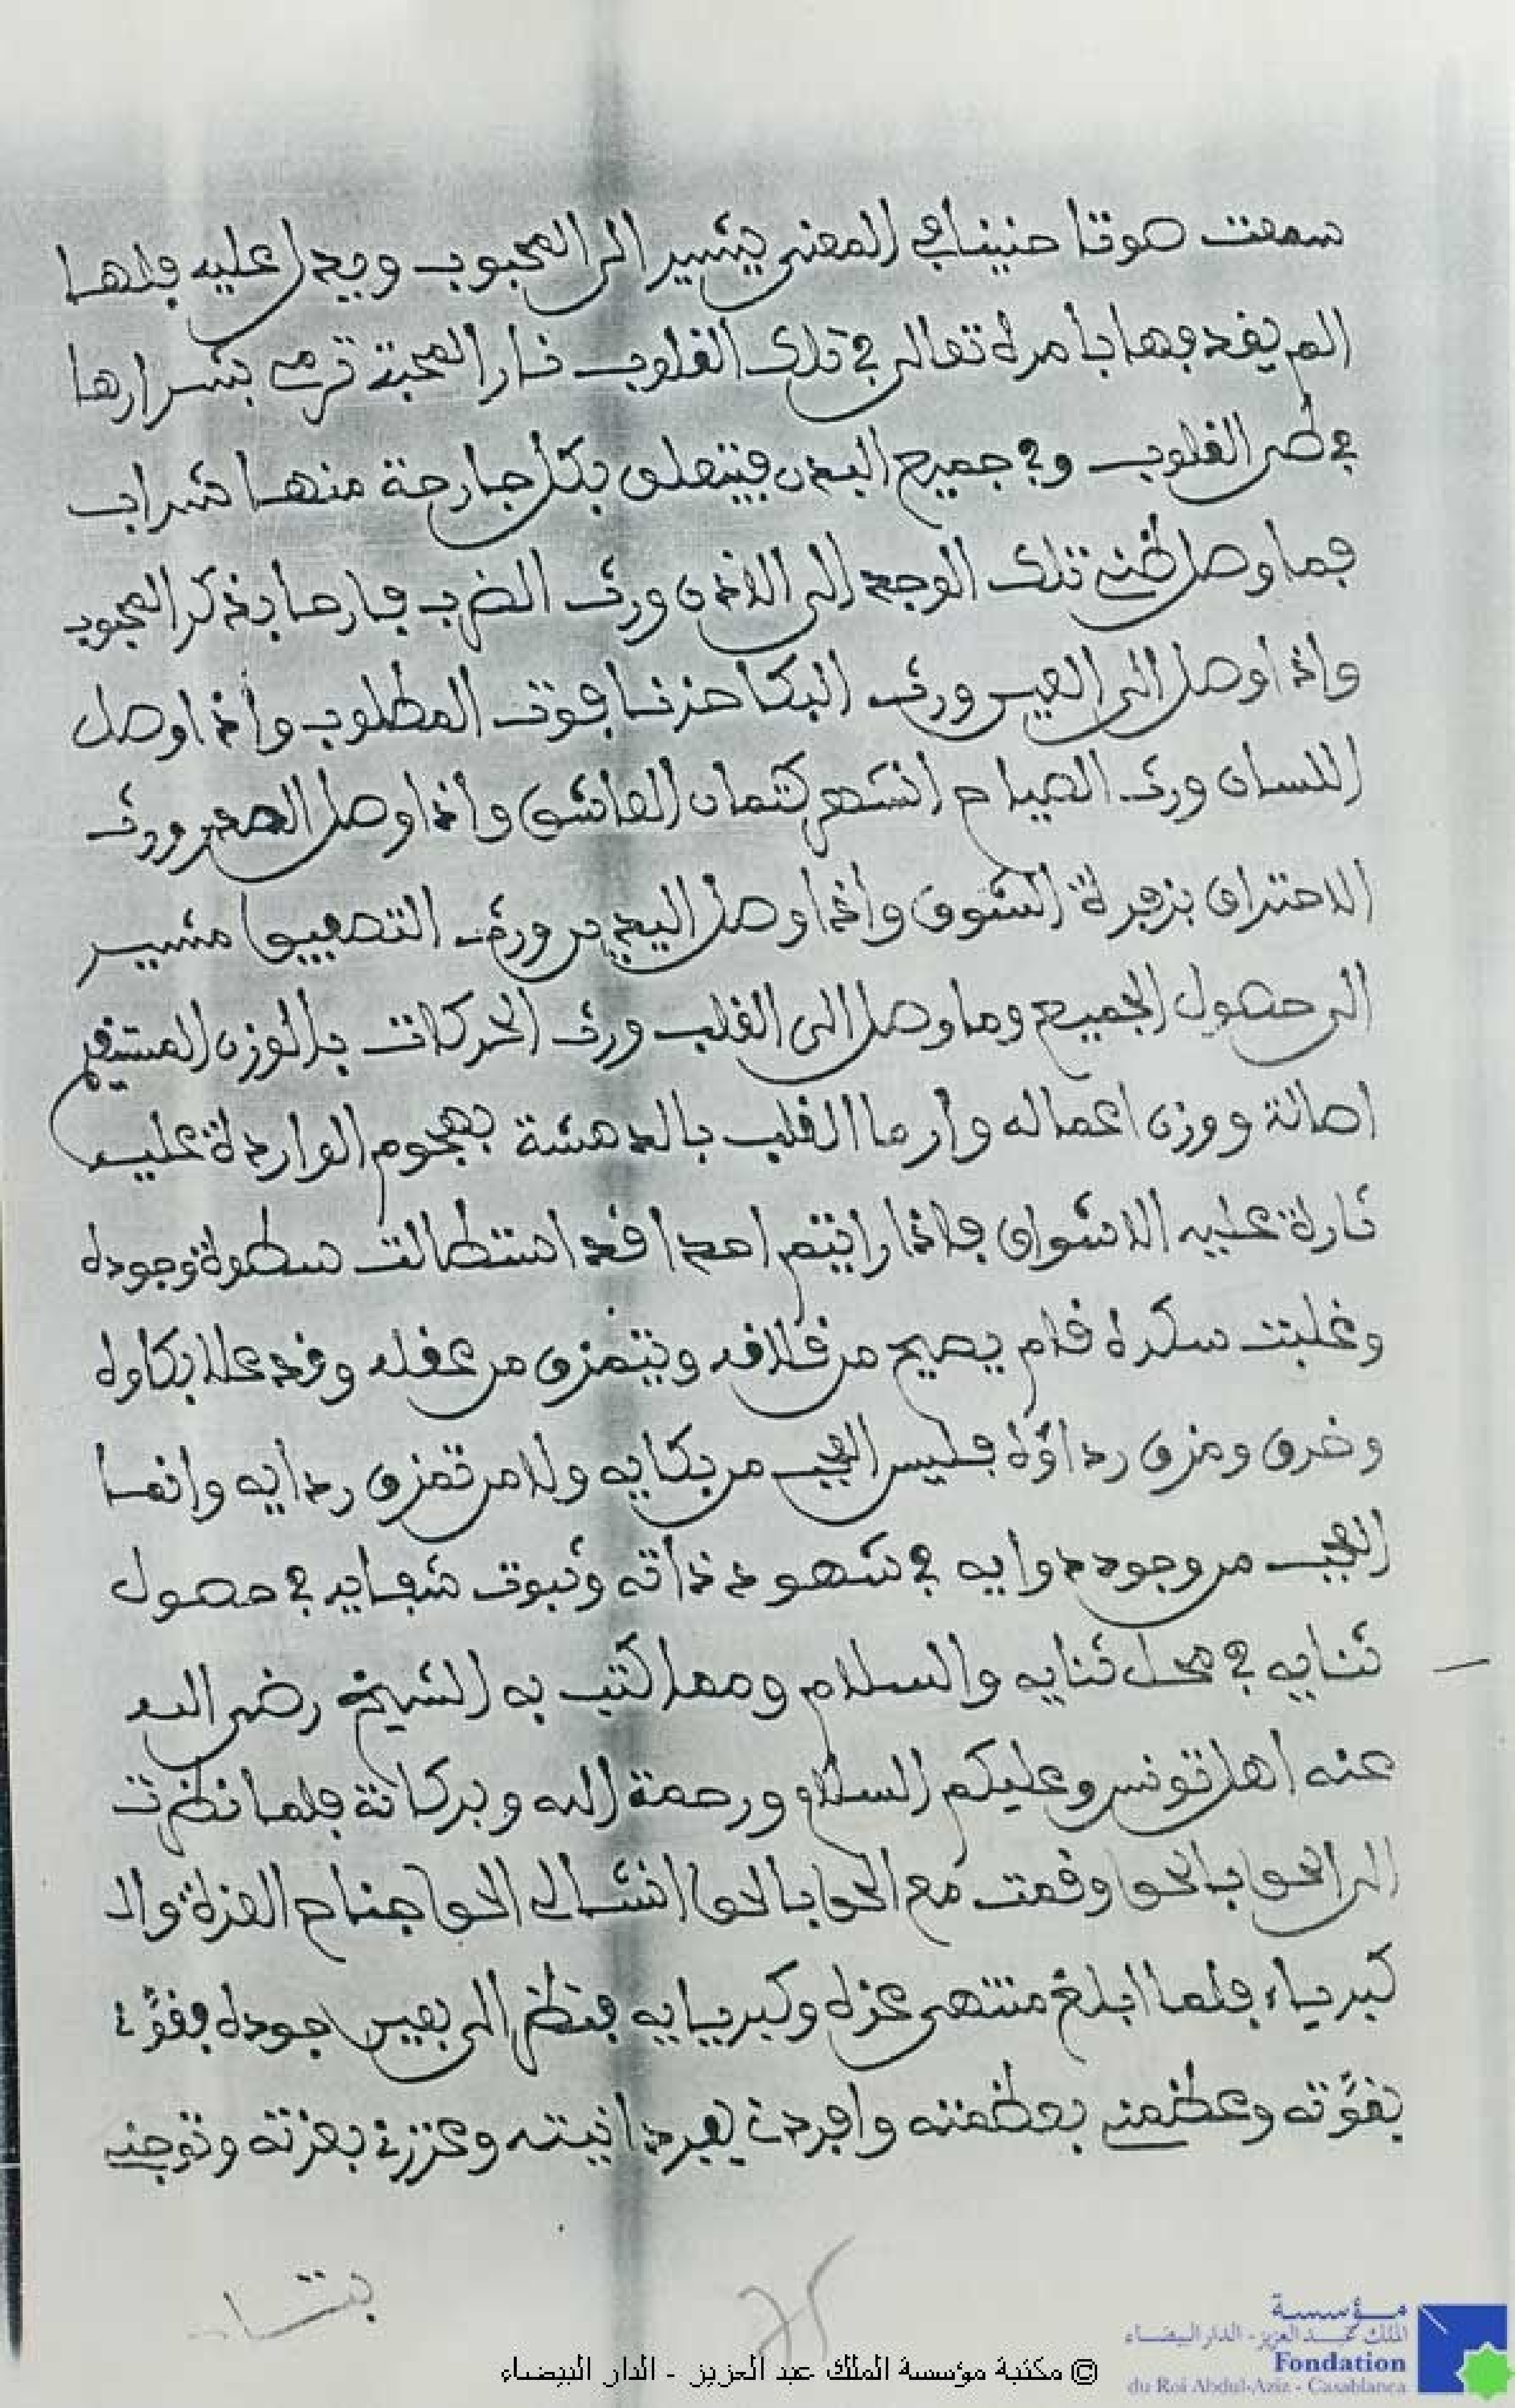 سمعت صوتا حنينا في المعنى يشير الى المحبوب ويدل عليه فلها
الم يفدفها بامره تعالى في تلك القلوب نار المحبة ترمي بشرارها
في القلوب وفي جميع البدن فيتعلق بكل جارحة منها شراب
فما وصل تلك الوجد الى الاذن ورث الضرب فارحا بذكر المحبوب
واذا وصل الى العين ورث البكا حزنا فوت المطلوب واذا وصل
اللسان ورث الصياح انتهى كتمان العاشق واذا وصل الصدر ورث
الاحتراق بزفرة الشوق واذا وصل اليدين ورث التصفيق مشير
الى حصول الجميع وما وصل الى القلب ورث الحركات بالوزن المستقيم
اصالة ووزن اعماله وارما القلب بالدهشة بهجوم الواردة عليه
ثارة عليه الاشواق فاذا رايتم احدا قد استطالت سطوة وجوده
وغلبت سكره قام يصيح من قلافه ويتمزق من عقله وقد علا بكاوه
وخرق ومزق رداؤه فليس العجب من بكايه ولا من تمزق ردايه وانما
العجب من وجود دوايه في شهود ذاته وثبوت شفايه في حصول
ثنايه في محل ثنايه والسلام ومما كتب به الشيخ رضي الله
عنه اهل تونس وعليكم السلام ورحمة الله وبركاته فلما نظرت
الى الحق بالحق وقمت مع الحق بالحق انشا لي الحق جناح العزة والـ
كبرياء فلما ابلغ منتهى عزه وكبريايه فنظر الى بعين جوده فقوّني
بقوّته وعظمني بعظمته وافردني بفردانيته وعززني بعزته وتوجني
بتـاج
© مكتبة مؤسسة الملك عبد العزيز - الدار البيضاء
مؤسسة
الملك عبد العزيز - الدار البيضاء
Fondation
du Roi Abdul-Aziz - Casablanca